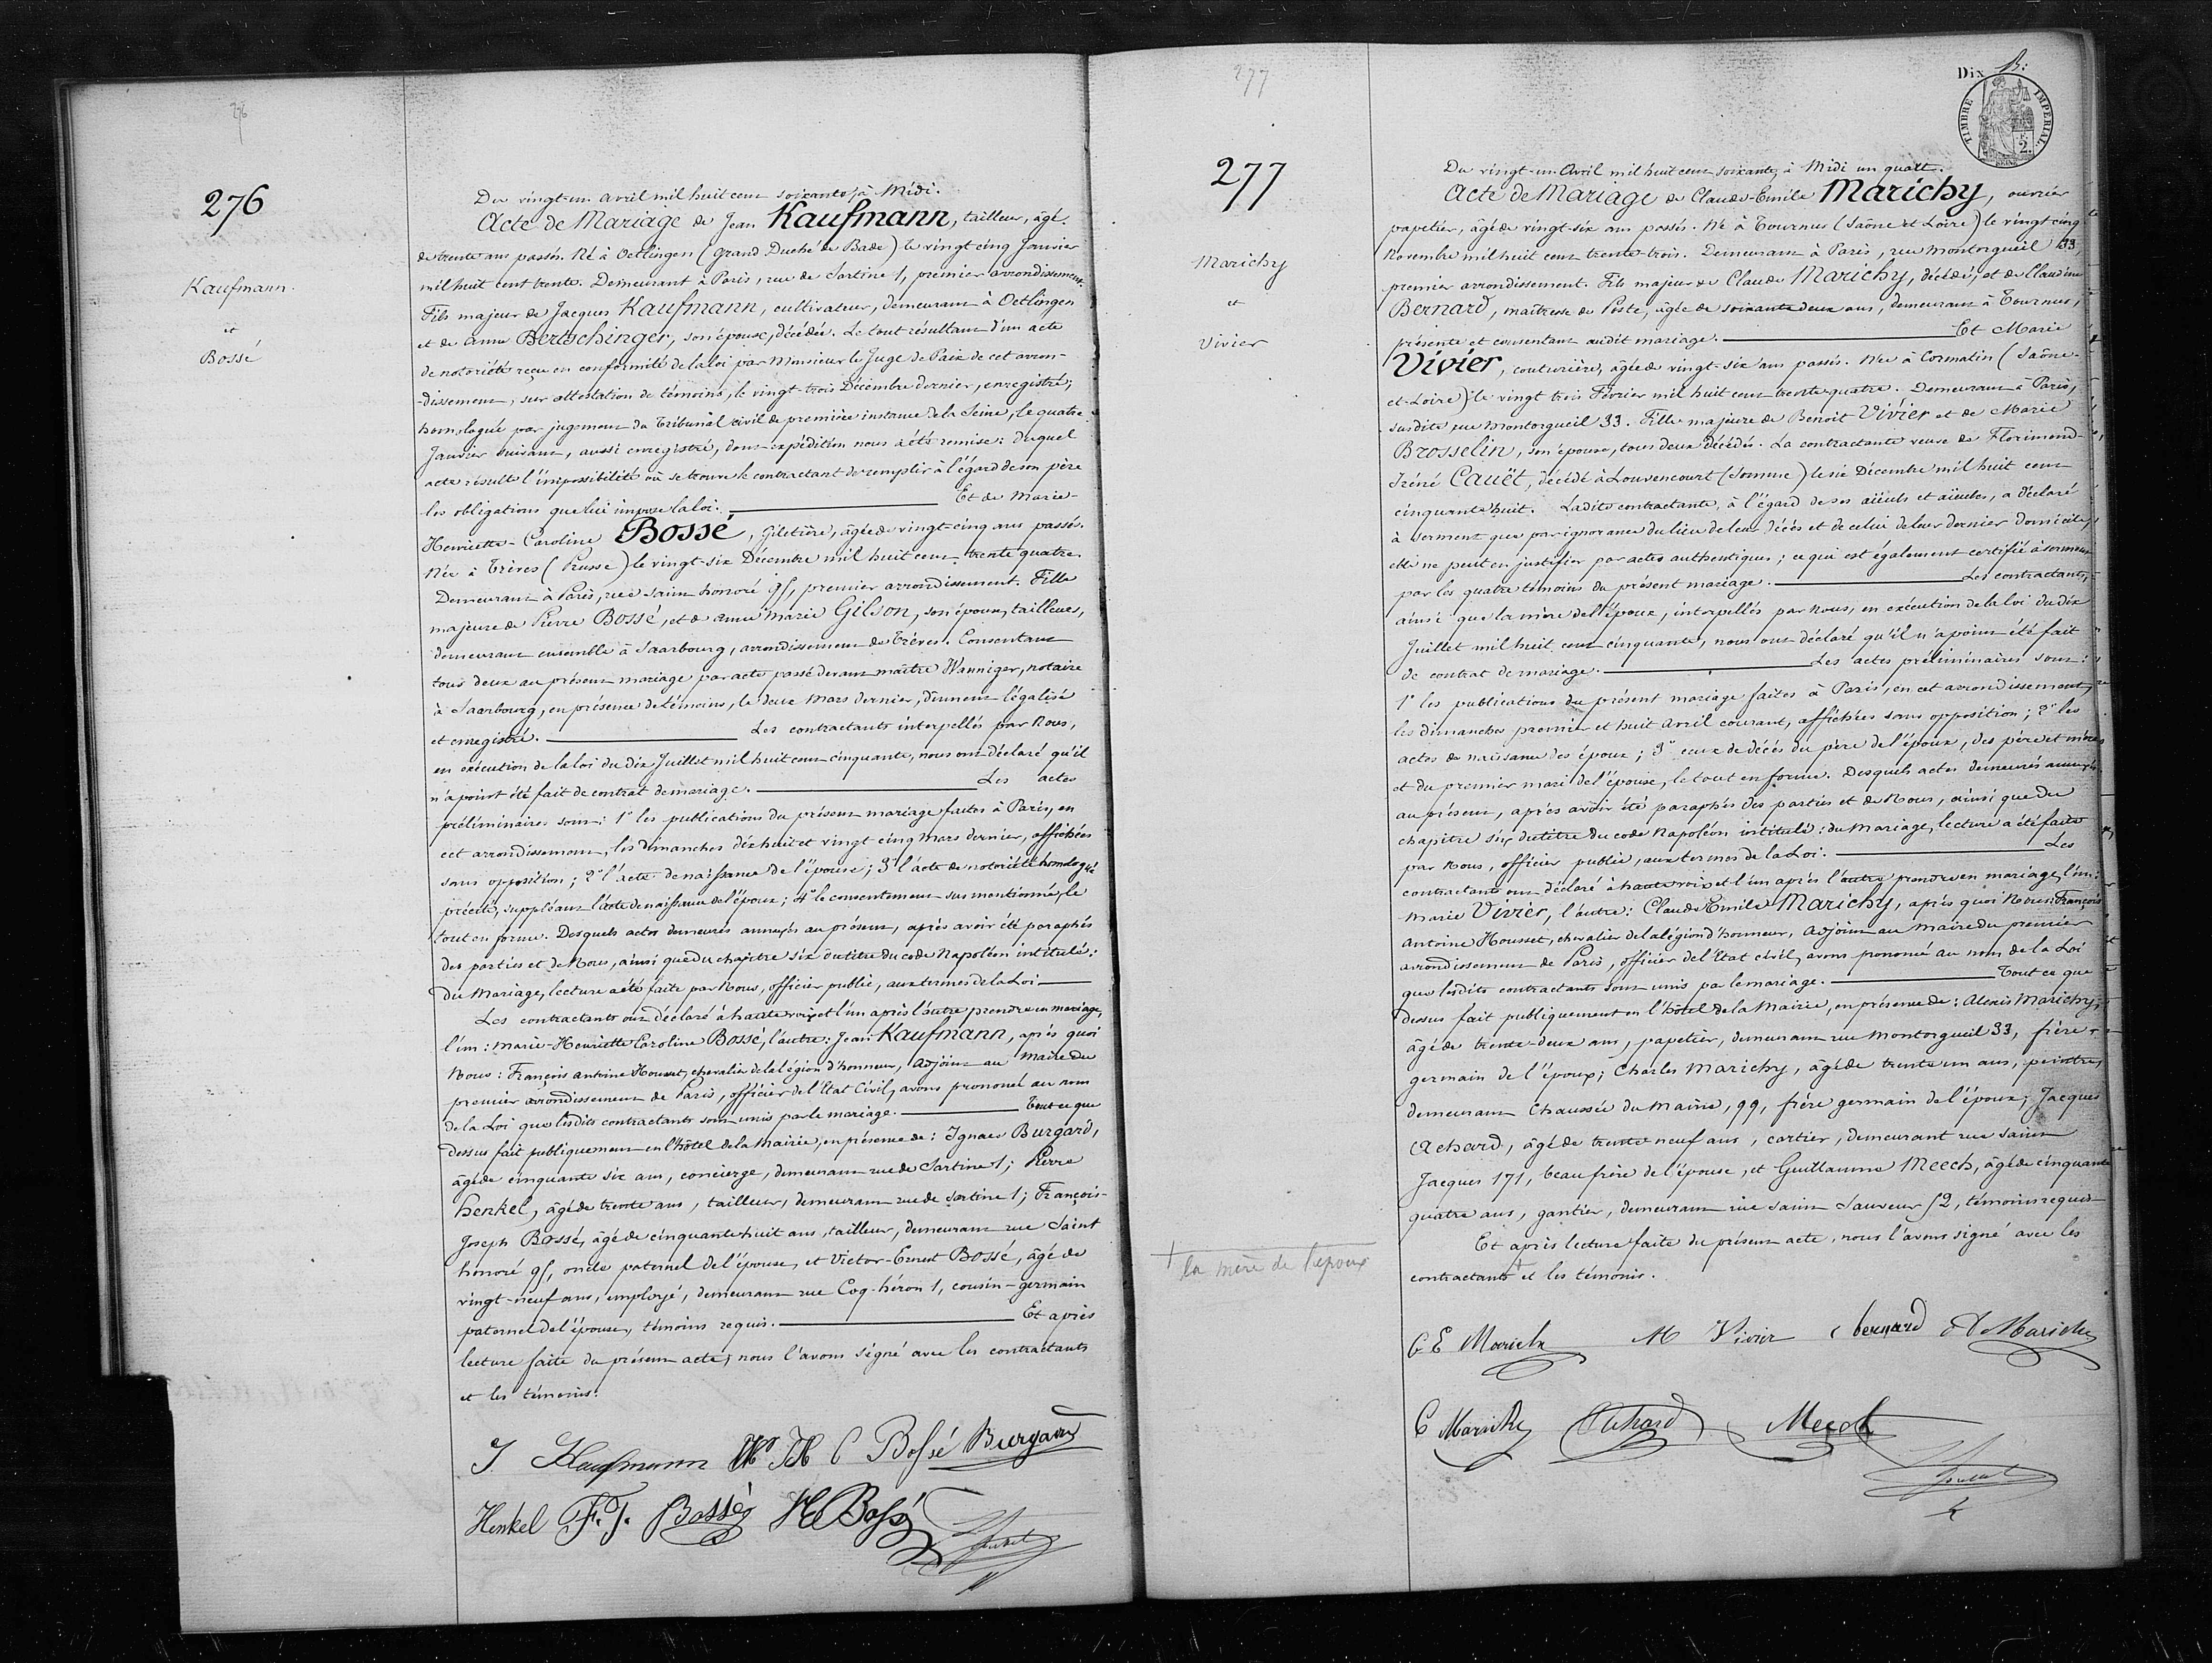 276
276
Kaufmann.
et
Bossé
Du vingt-un avril mil huit cent soixante, à Midi.
Acte de Mariage de Jean Kaufmann, tailleur, âgé
de trente ans passés. Né à Oetlingen (Grand Duché de Bade) le vingt cinq Janvier
mil huit cent trente. Demeurant à Paris, rue de Sartine 1, premier arrondissement.
Fils majeur de Jacques Kaufmann, cultivateur, demeurant à Oetlingen
et de Anne Bertschinger, son épouse, décédée. Le tout résultant d'un acte
de notoriété reçu en conformité de la loi par Monsieur le Juge de Paix de cet arron-
-dissement, sur attestation de témoins, le vingt-trois Décembre dernier, enregistré;
homologué par jugement du Tribunal civil de première instance de la Seine, le quatre
Janvier suivant, aussi enregistré, dont expédition nous a été remise: duquel
acte résulte l'impossibilité où se trouve le contractant de remplir à l'égard de son père
les obligations que lui impose la loi. Et de Marie-
Henriette-Caroline Bossé, giletière, âgée de vingt-cinq ans passés.
Née à Trèves (Prusse) le vingt-six Décembre mil huit cent trente quatre.
Demeurant à Paris, rue saint honoré 95, premier arrondissement. Fille
majeure de Pierre Bossé, et de anne Marie Gilson, son épouse, tailleurs,
demeurant ensemble à Saarbourg, arrondissement de Trèves. Consentant
tous deux au présent mariage par acte passé devant maître Wanniger, notaire
à Saarbourg, en présence de témoins, le deux Mars dernier, dûment légalisé
et enregistré. Les contractants interpellés par Nous,
en exécution de la loi du dix Juillet mil huit cent cinquante, nous ont déclaré qu'il
n'a point été fait de contrat de mariage. Les actes
préliminaires sont: 1° les publications du présent mariage faites à Paris, en
cet arrondissement, les dimanches dix huit et vingt cinq Mars dernier, affichées
sans opposition; 2° l'acte de naissance de l'épouse; 3° l'acte de notoriété homologué
précité, suppléant l'acte de naissance de l'époux; 4° le consentement sus mentionné, le
tout en forme. Desquels actes demeurés annexés au présent, après avoir été paraphés
des parties et de Nous, ainsi que du chapitre six du titre du code Napoléon intitulé:
du Mariage, lecture a été faite par Nous, officier public, aux termes de la Loi
Les contractants ont déclaré à haute voix et l'un après l'autre prendre en mariage,
l'un: Marie-Henriette Caroline Bossé, l'autre: Jean Kaufmann, après quoi
Nous: François Antoine Housset, chevalier de la légion d'honneur, Adjoint au Maire du
premier arrondissement de Paris, officier de l'Etat Civil, avons prononcé au nom
de la Loi que lesdits contractants sont unis par le mariage. Tout ce que
dessus fait publiquement en l'hôtel de la Mairie, en présence de: Ignace Burgard,
âgé de cinquante six ans, concierge, demeurant rue de Sartine 1; Pierre
henkel, âgé de trente ans, tailleur, demeurant rue de sartine 1; François-
Joseph Bossé, âgé de cinquante huit ans, tailleur, demeurant rue Saint
honoré 95, oncle paternel de l'épouse, et Victor-Ernest Bossé, âgé de
vingt-neuf ans, employé, demeurant rue Coq-héron 1, cousin-germain
paternel de l'épouse, témoins requis. Et après
lecture faite du présent acte, nous l'avons signé avec les contractants
et les témoins.
J. Kaufmann M H C Bossé Burgard
Henkel F. J. Bossé Bossé
277
277
Marichy
et
Vivier
Dix
TIMBRE IMPÉRIAL
2.
SEINE
Du vingt-un Avril mil huit cent soixante, à Midi un quart.
Acte de Mariage de Claude-Emile Marichy, ouvrier
papetier, âgé de vingt-six ans passés. Né à Tournus (Saône et Loire) le vingt cinq
Novembre mil huit cent trente-trois. Demeurant à Paris, rue Montorgueil 33,
premier arrondissement. Fils majeur de Claude Marichy, décédé, et de Claudine
Bernard, maîtresse de Poste, âgée de soixante deux ans, demeurant à Tournus,
présente et consentant audit mariage. Et Marie
Vivier, couturière, âgée de vingt-six ans passés. Née à Cormatin (Saône-
et-Loire) le vingt trois Février mil huit cent trente quatre. Demeurant à Paris,
susdite rue Montorgueil 33. Fille majeure de Benoit Vivier et de Marie
Brosselin, son épouse, tous deux décédés. La contractante veuve de Florimond-
Iréné Cauët, décédé à Louvencourt (Somme) le six Décembre mil huit cent
cinquante huit. Ladite contractante, à l'égard de ses aïeuls et aïeules, a déclaré
à serment que par ignorance du lieu de leur décès et de celui de leur dernier domicile,
elle ne peut en justifier par actes authentiques; ce qui est également certifié à serment
par les quatre témoins du présent mariage. Les contractants,
ainsi que la mère de l'époux, interpellés par Nous, en exécution de la loi du dix
Juillet mil huit cent cinquante, nous ont déclaré qu'il n'a point été fait
de contrat de mariage. Les actes préliminaires sont:
1° les publications du présent mariage faites à Paris, en cet arrondissement,
les dimanches premier et huit avril courant, affichées sans opposition; 2° les
actes de naissance des époux; 3° ceux de décès du père de l'époux, des père et mère
et du premier mari de l'épouse, le tout en forme. Desquels actes demeurés annexés
au présent, après avoir été paraphés des parties et de Nous, ainsi que du
chapitre six du titre du code Napoléon intitulé: du Mariage, lecture a été faite
par Nous, officier public, aux termes de la Loi. Les
contractants ont déclaré à haute voix et l'un après l'autre prendre en mariage, l'un:
Marie Vivier, l'autre: Claude Emile Marichy, après quoi Nous: François
Antoine Housset, chevalier de la légion d'honneur, Adjoint au Maire du premier
arrondissement de Paris, officier de l'Etat civil, avons prononcé au nom de la Loi
que lesdits contractants sont unis par le mariage. Tout ce que
dessus fait publiquement en l'hôtel de la Mairie, en présence de: Alexis Marichy,
âgé de trente-deux ans, papetier, demeurant rue Montorgueil 33, frère
germain de l'époux; Charles Marichy, âgé de trente un ans, peintre,
demeurant Chaussée du Maine, 99, frère germain de l'époux; Jacques
Achard, âgé de trente neuf ans, cartier, demeurant rue saint
Jacques 171, beau frère de l'épouse, et Guillaume Meech, âgé de cinquante
quatre ans, gantier, demeurant rue saint Sauveur 52, témoins requis
Et après lecture faite du présent acte, nous l'avons signé avec les
contractants † et les témoins.
† la mère de l'époux
C E Marichy M Vivier C bernard A Marichy
C Marichy Achard Meech